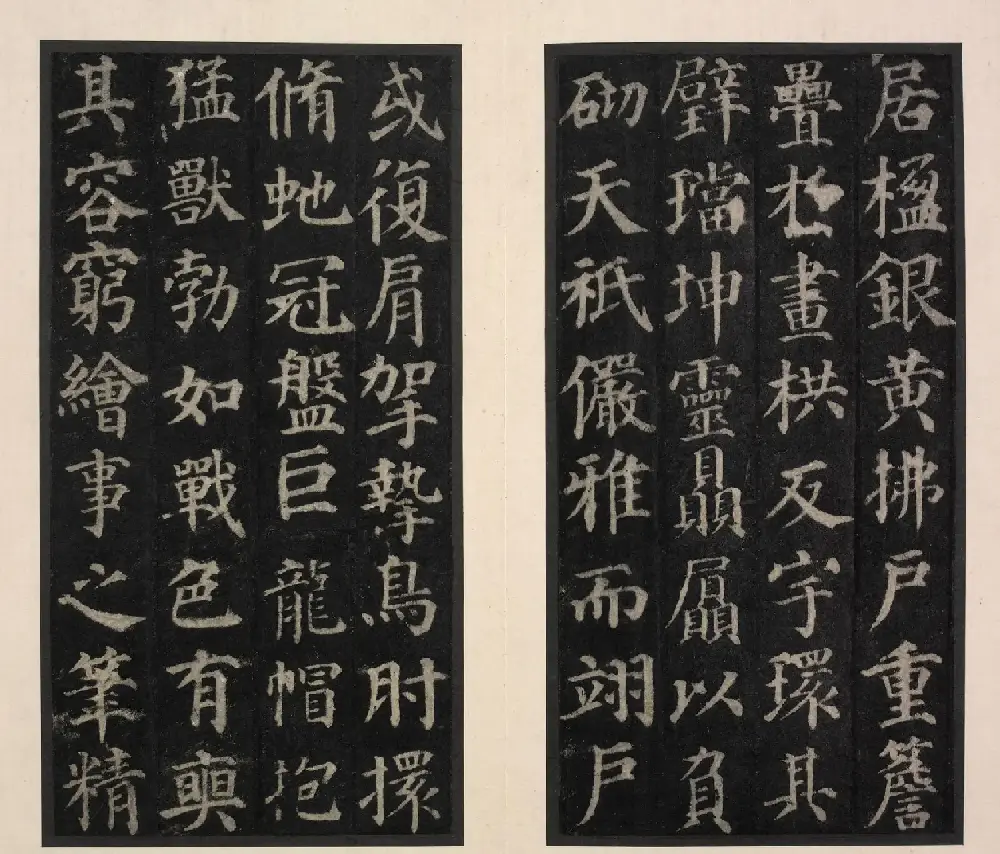 居楹銀黃拂戶重簷
疊於畫栱反宇環其
璧璫坤靈贔屭以負
砌天祇儼雅而翊戶
或復肩挐摯鳥肘擐
脩虵冠盤巨龍帽抱
猛獸勃如戰色有奭
其容窮繪事之筆精